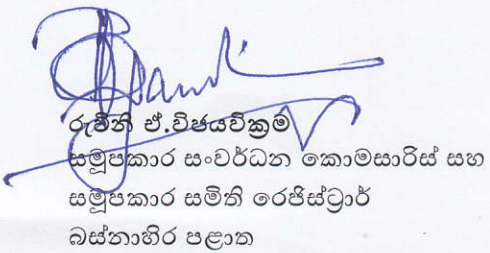 රුවිනි ඒ.විජයවික්‍රම
සමූපකාර සංවර්ධන කොමසාරිස් සහ
සමූපකාර සමිති රෙජිස්ට්‍රාර්
බස්නාහිර පළාත